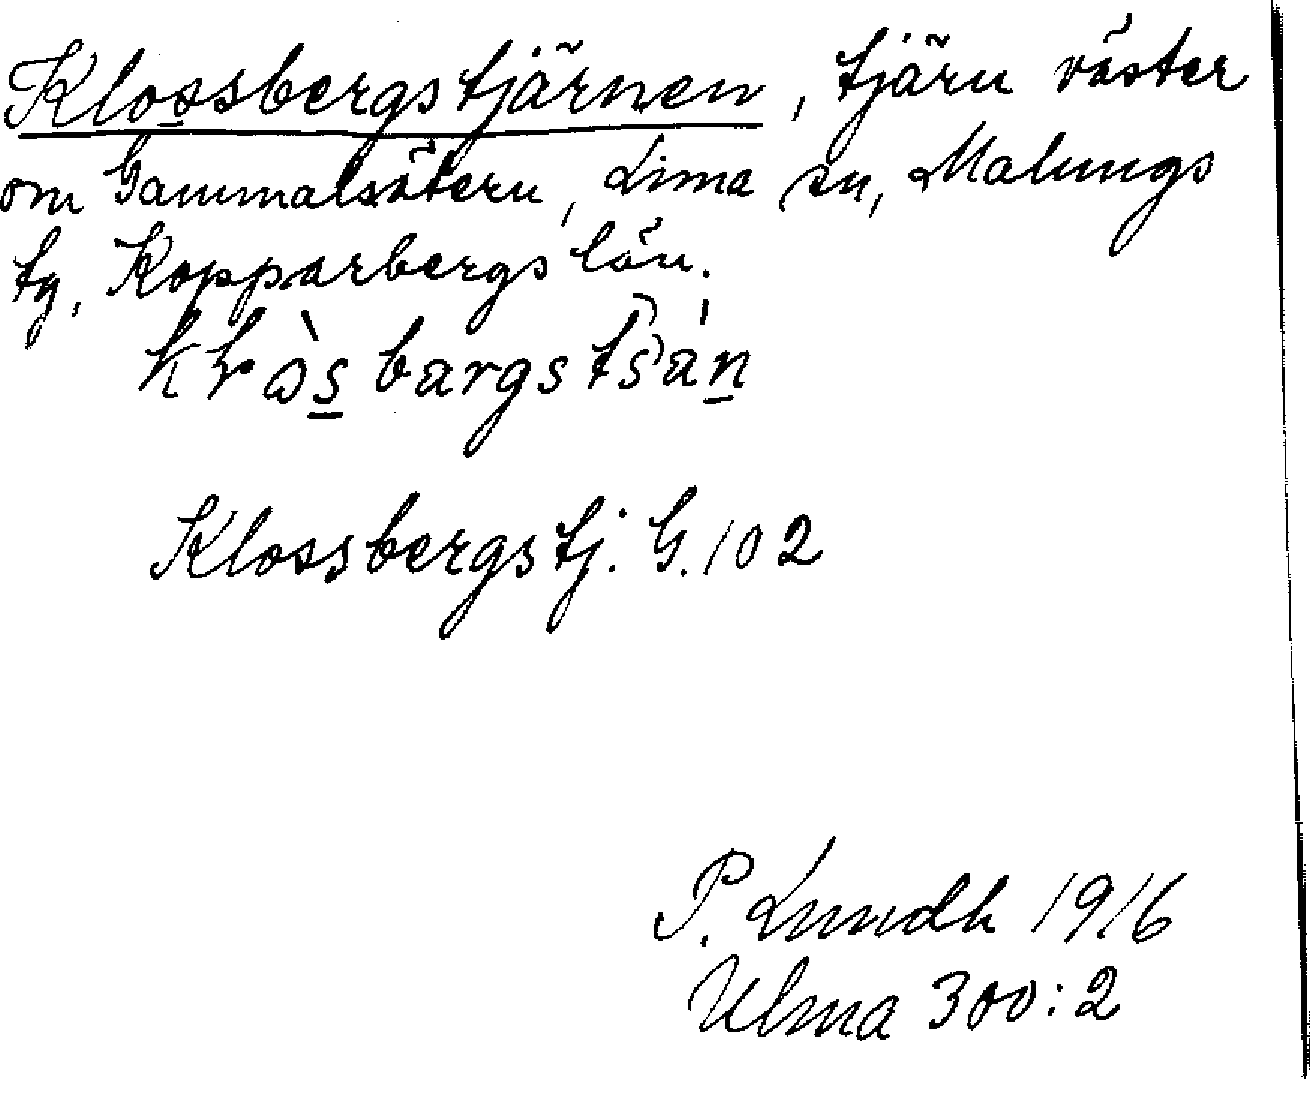 Klossbergstjärnen, tjärn väster
om Gammalsätern, Lima sn, Malungs
tg, Kopparbergs län.
Klossbergstj. G. 102
P. Lundh 1916
Ulma 300:2